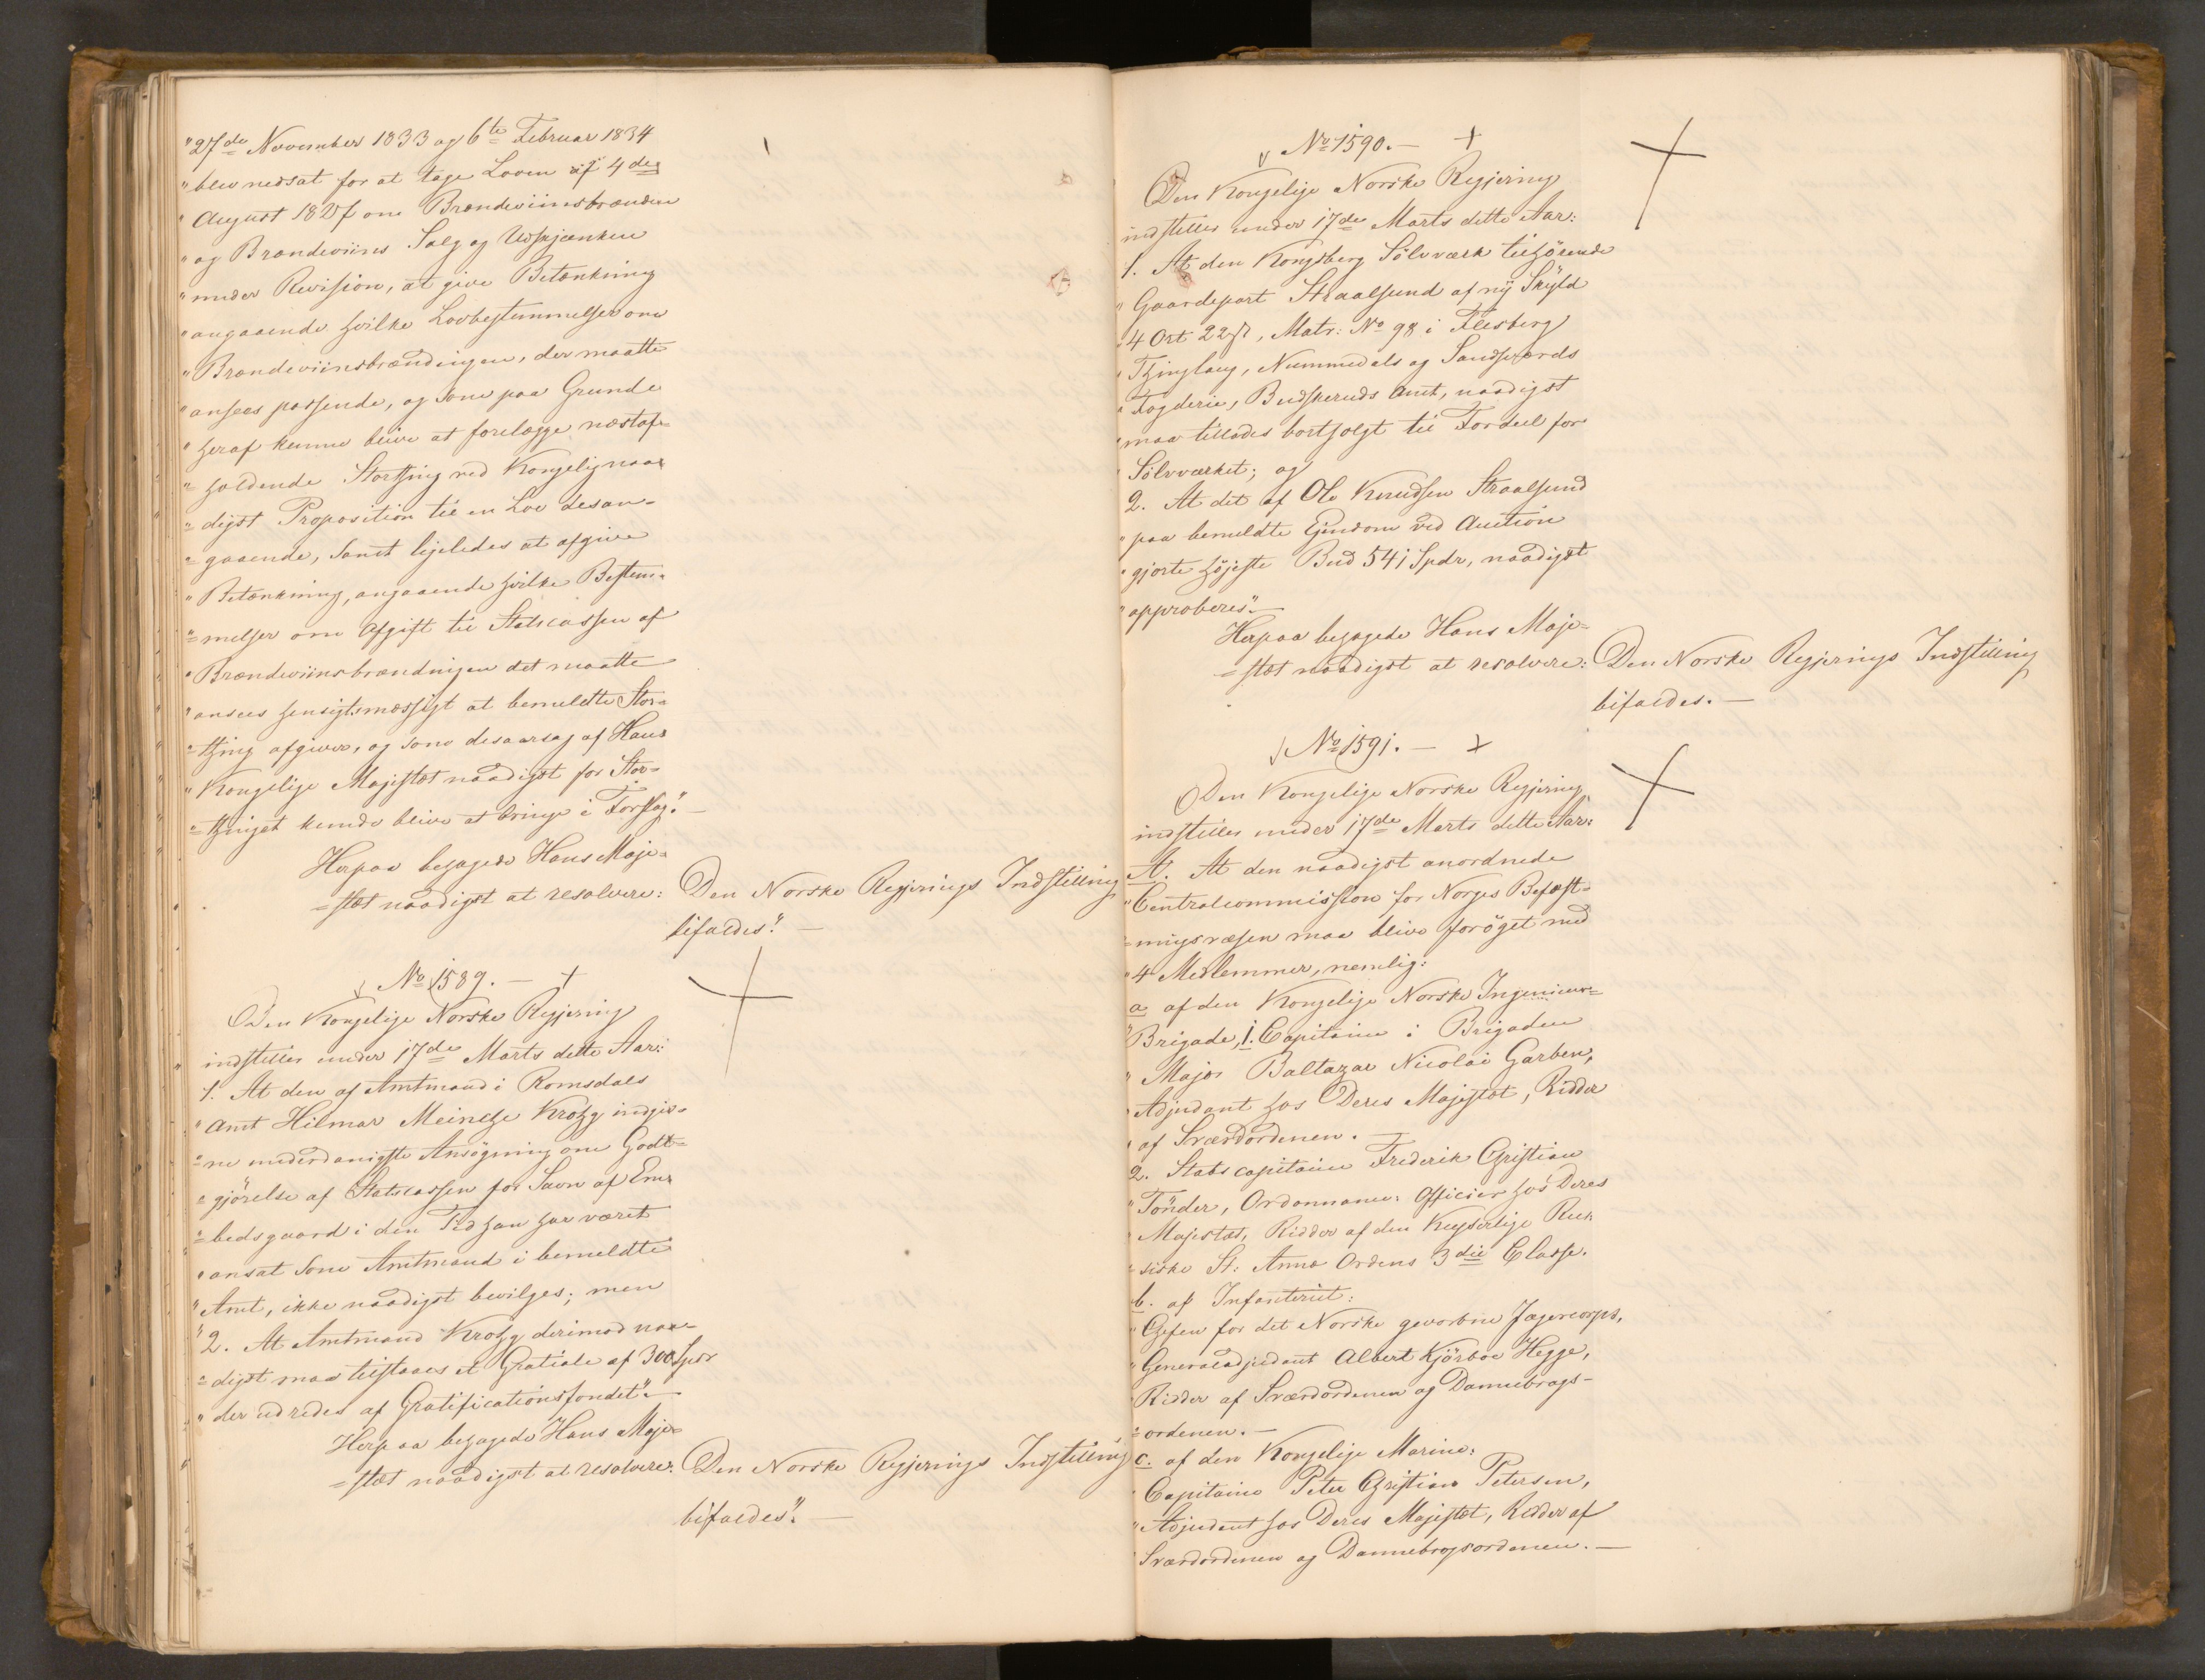 "27de November 1833 og 6te Februar 1834
"blev nedsat for at tage Loven af 4des
"August 1827 om Brændeviinsbrænden
"og Brændeviins Salg og Udskjænken
"under Revision, at give Betænkning
"angaaende hvilke Lovbestemmelser om
"Brændeviinsbrændingen, der maatte
"ansees passende, og som paa Grunde
"heraf kunne blive at forelægge næstaf-
"=holdende Storthing ved Kongelig naa-
"=digst Proposition til en Lov desan-
"=gaaende, samt ligeledes at afgive
"Betænkning, angaaende hvilke Bestem-
"=melser om Afgift til Statscassen af
"Brændeviinsbrændingen det maatte
"ansees hensigtsmæssigt at bemeldte Stor-
"=thing afgiver, og som desaarsag af Hans
"Kongelige Majestæt naadigst for Stor-
"=thinget kunde blive at bringe i Forslag." —
Herpaa behagede Hans Maje-
=stæt naadigst at resolvere: Den Norske Regjerings Indstilling
bifaldes." —
No 1589. — +
Den Kongelige Norske Regjering
indstiller under 17de Marts dette Aar:
"1. At den af Amtmand i Romsdals
"Amt Hilmar Meincke Krohg indgiv-
"=ne underdanigste Ansøgning om Godt-
"=gjörelse af Statscassen for Savn af Em-
"=bedsgaard i den Tid han har været
"ansat som Amtmand i bemeldte
"Amt, ikke naadigst bevilges; men
"2. At Amtmand Krohg derimod naa-
"=digst maa tilstaaes et Gratiale af 300 Spdr
"der udredes af Gratificationsfondet". —
Herpaa behagede Hans Maje-
=stæt naadigst at resolvere: Den Norske Regjerings Indstilling
bifaldes". —
No 1590. — +
Den Kongelige Norske Regjering
indstiller under 17de Marts dette Aar:
1. At den Kongsberg Sölvværk tilhörende
"Gaardepart Straalsund af ny Skyld
"4 Ort 22 ß, Matr: No 98 i Flesberg
"Thinglaug, Nummedals og Sandsværds
"Fogderie, Budskeruds Amt, naadigst
"maa tillades bortsolgt til Fordeel for
"Sölvværket; og
2. At det af Ole Knudsen Straalsund
"paa bemeldte Ejendom ved Auction
"gjorte höjeste Bud 541 Spdr, naadigst
"approberes". —
Herpaa behagede Hans Maje-
=stæt naadigst at resolvere: Den Norske Regjerings Indstilling
bifaldes. —
No 1591. — +
Den Kongelige Norske Regjering
indstiller under 17de Marts dette Aar:
A. At den naadigst anordnede
"Centralcommission for Norges Befæst-
"=ningsvæsen maa blive foröget med
"4 Medlemmer, nemlig:
a af den Kongelige Norske Ingenieur-
"Brigade, 1. Capitaine i Brigaden
"Major Baltazar Nicolai Garben,
"Adjudant hos Deres Majestæt, Ridder
"af Sværdordenen. —
2. Stabscapitaine Frederik Christian
"Tönder, Ordonnance-Officier hos Deres
"Majestæt, Ridder af den Keyserlige Rus-
"=siske St: Anna Ordens 3die Classe.
b. af Infanteriet:
"Chefen for det Norske gevorbne Jægercorps,
"Generaladjudant Albert Kjörboe Hegge,
"Ridder af Sværdordenen og Dannebrogs-
"=ordenen. —
c. af den Kongelige Marine:
"Capitaine Peter Christian Petersen,
"Adjudant hos Deres Majestæt, Ridder af
"Sværdordenen og Dannebrogsordenen. —